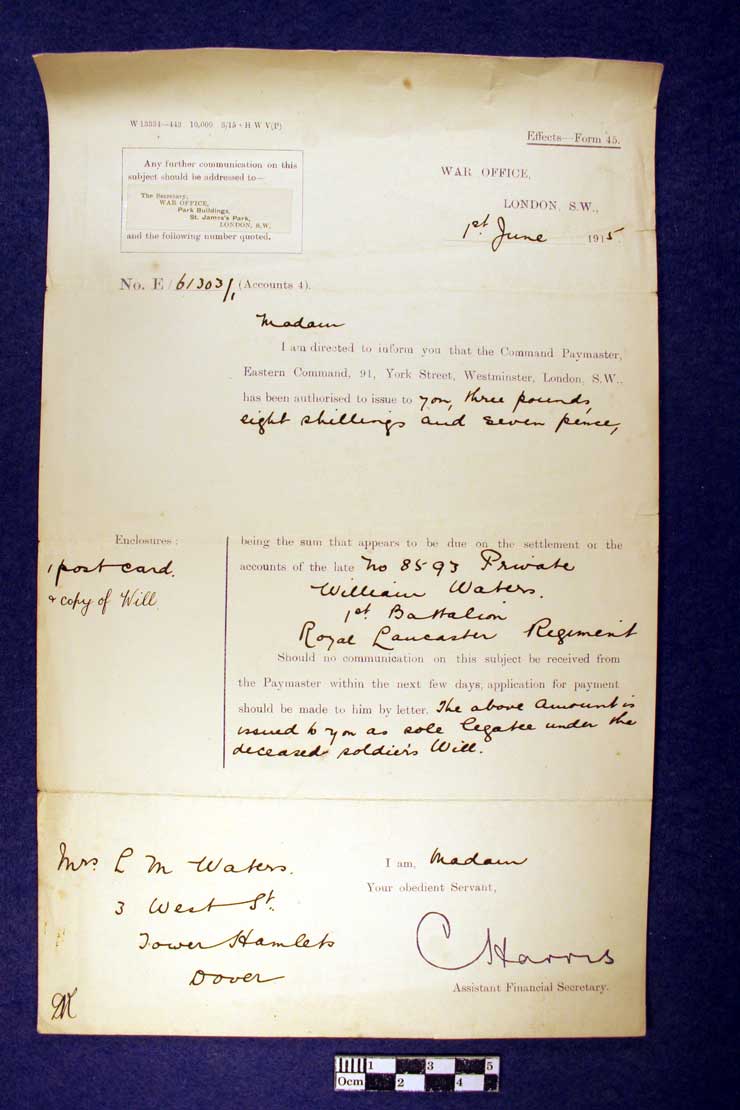 W 13334—443 10,000 3/15 H W V(P)
Effects—Form 45.
Any further communication on this
subject should be addressed to—
The Secretary,
WAR OFFICE,
Park Buildings,
St. James's Park,
LONDON, S.W.
and the following number quoted.
WAR OFFICE,
LONDON, S.W.,
1st June 1915
No. E/61303/1 (Accounts 4).
Madam
I am directed to inform you that the Command Paymaster,
Eastern Command, 91, York Street, Westminster, London, S.W.,
has been authorised to issue to you, three pounds,
eight shillings and seven pence,
Enclosures:
1 post card.
& copy of Will
being the sum that appears to be due on the settlement of the
accounts of the late No 8593 Private
William Waters.
1st Battalion
Royal Lancaster Regiment
Should no communication on this subject be received from
the Paymaster within the next few days, application for payment
should be made to him by letter. The above amount is
issued to you as sole legatee under the
deceased soldier's Will.
Mrs. L M Waters.
3 West St.
Tower Hamlets
Dover
I am, Madam
Your obedient Servant,
C Harris
Assistant Financial Secretary.
0cm 1 2 3 4 5